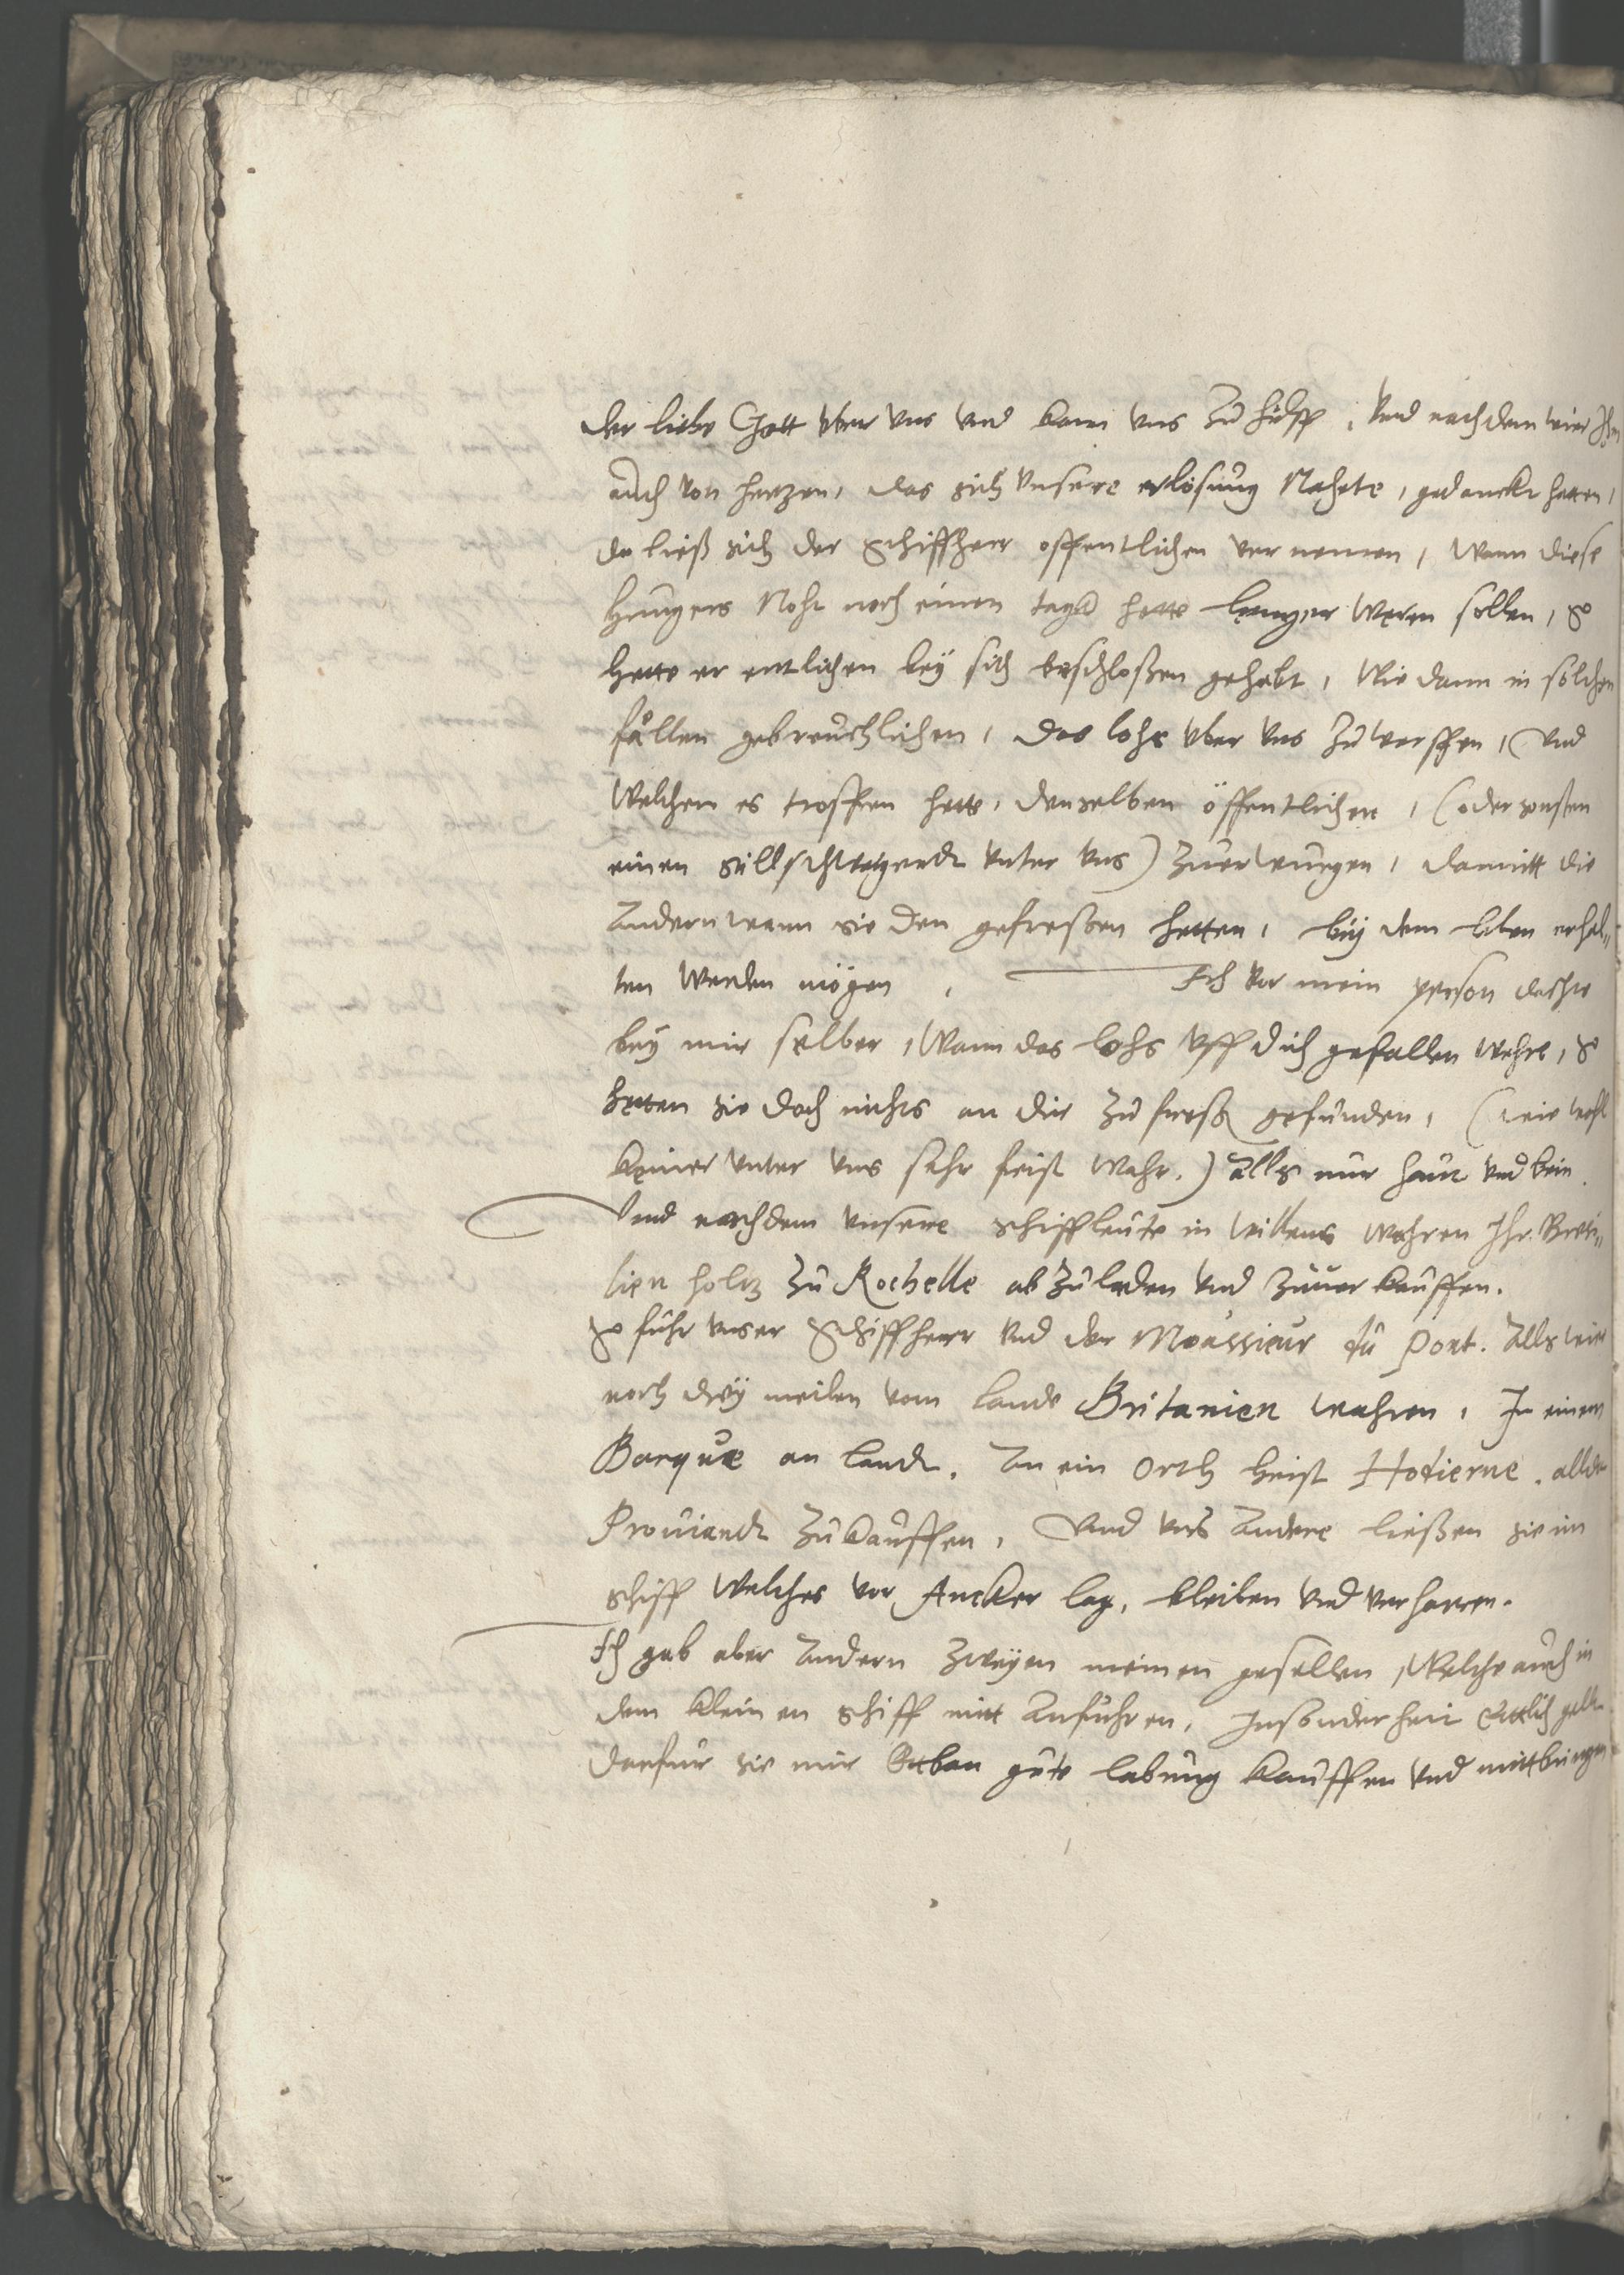 der liebe Gott vber vns vnd kam vns zu hülff, Vnd nach dem wier Ihm
auch von hertzen, das sich vnsere erlösung Nahete, gedanckt hetten,
do ließ sich der Schiffherr offentlichen vernemen, Wann diese
Hungers Noht noch einen tagk hette lenger weren sollen, So
hette er entlichen bey sich beschloßen gehabt, Wie dann in solchen
fällen gebreuchlichen, das lohs vber vns zu werffen, Vnd
Welchen es troffen hette, denselben öffentlichen, (oder sonsten
einen stillschweigendt vnter vns) zuerwürgen, damitt die
Andern wann sie den gefreßen hetten, bey dem leben erhal„
ten werden mögen, Ich vor mein person dachte
bey mir selber, Wann das lohs vff dich gefallen wehre, So
hetten sie doch nichts an dir zu freßen gefunden, (wie wohl
keiner vnter vns sehr feist wahr.) Alls nur haut vnd bein.
Vnd nachdem vnsere Schiffleute in willens wahren Ihr Bresi„
lien holtz zu Rochelle ab zu laden vnd zuuerkauffen.
So fuhr vnser Schiffherr vnd der Moussieur du Pont. Alls wier
noch drey meilen vom lande Britanien wahren, In einem
Barque an landt. An ein Orth heist Hodierne. allda
Prouiandt zu kauffen, Vnd vns Andere ließen sie im
schiff welches vor Ancker lag, bleiben vnd verharren.
Ich gab aber Andern zweyen meinen gesellen, Welche auch in
dem kleinen schiff mitt Anfuhren, Insonderheit Ettlich gellt
darfür sie mir Etwan gute labung kauffen vnd mittbringen